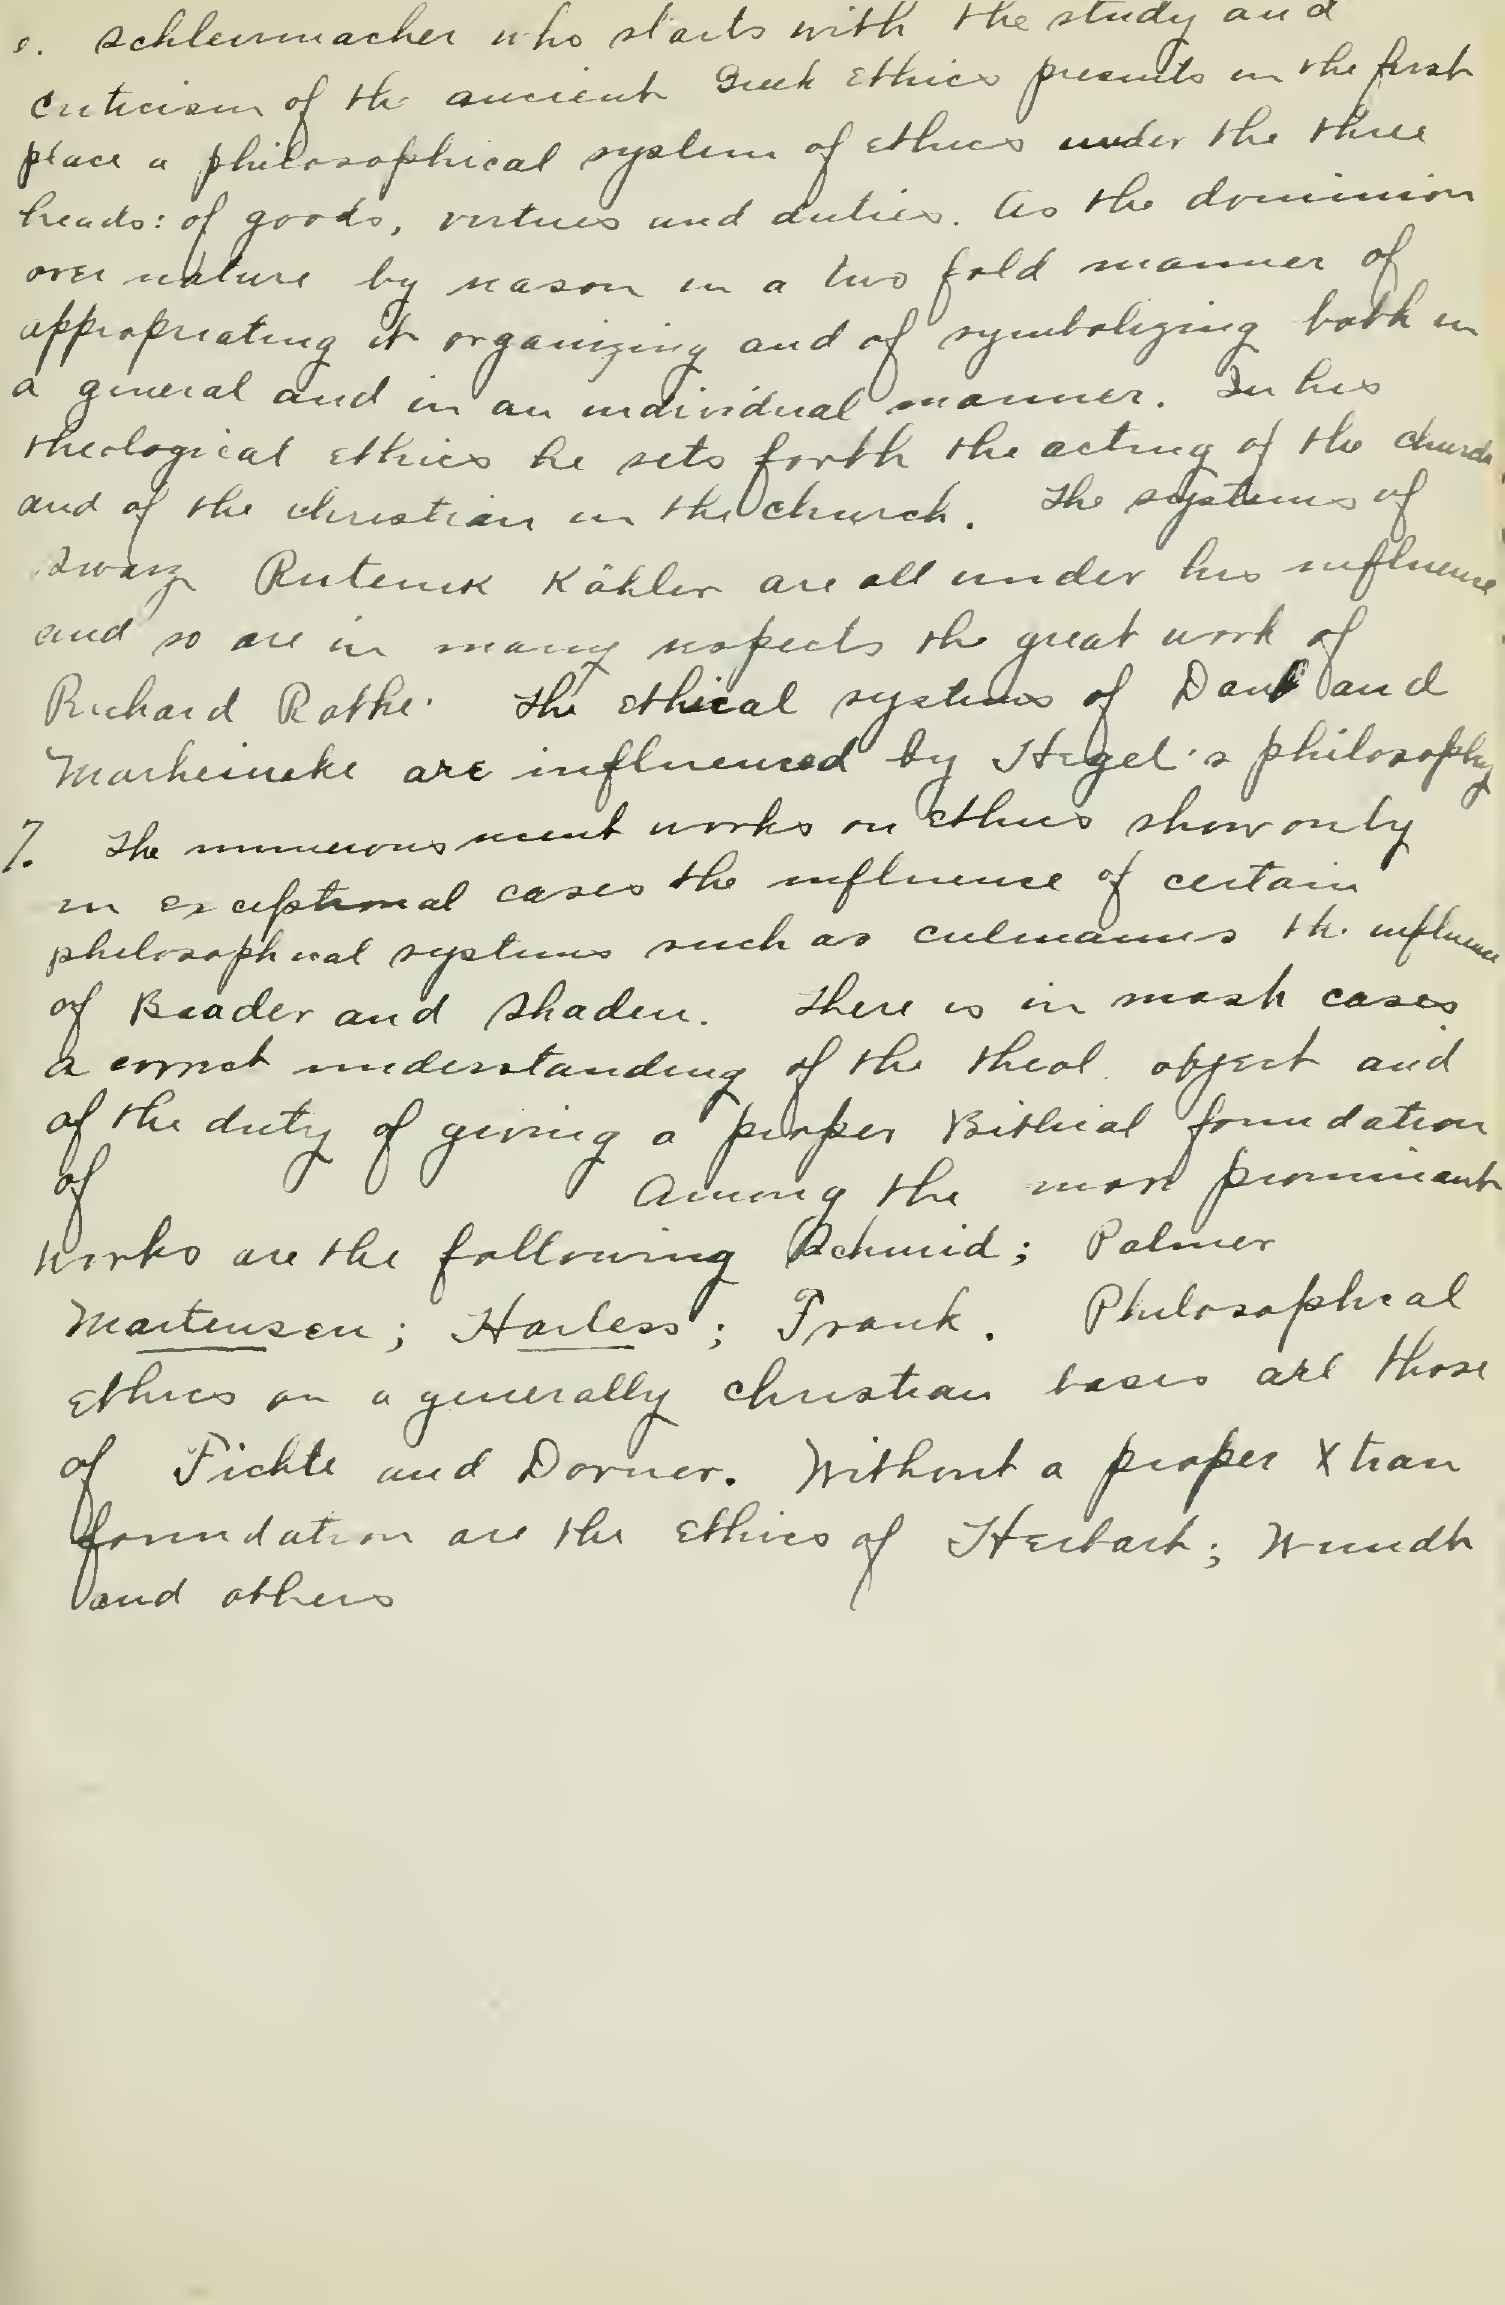 Schleiermacher who starts with the study and
criticism of the ancient Greek Ethics presents in the first
place a philosophical system of ethics under the three
heads: of goods, virtues and duties. As the dominion
over nature by reason in a two fold manner of
appropriating it organizing and of symbolizing both in
a general and in an individual manner. In his
theological ethics he sets forth the acting of the church
and of the christian in the church. The systems of
Rutenik Kähler are all under his influence
and so are in many respects the great work of
Richard Rothe. The ethical systems of Daub and
Marheineke are influenced by Hegel's philosophy
7. The numerous recent works on ethics show only
in exceptional cases the influence of certain
philosophical systems such as culmanns the influence
of Baader and Shaden. There is in most cases
a correct understanding of the theol. object and
of the duty of giving a proper Biblical foundation
of Among the more prominent
works are the following Schmid; Palmer
Martensen; Harless; Frank. Philosophical
Ethics on a generally christian basis are those
of Fichte and Dorner. Without a proper Xtian
foundation are the Ethics of Herbart; Wundt
and others